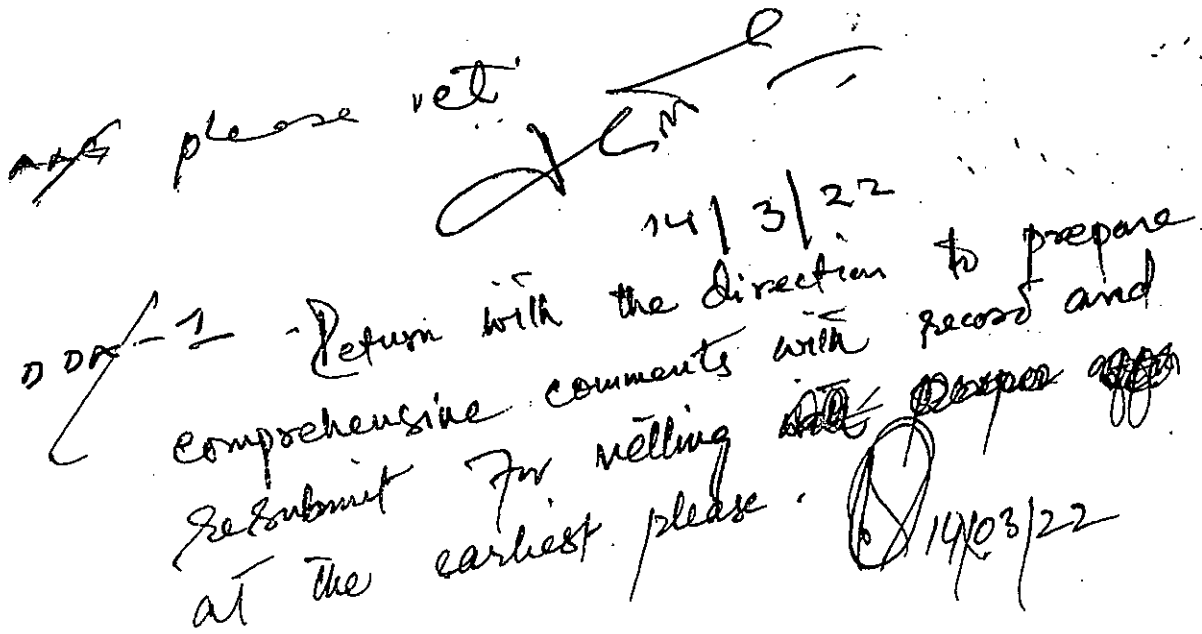 AAG please vet
14/3/22
DDA-1 Return with the direction to prepare
comprehensive comments with record and
resubmit for vetting
at the earliest please.
14/03/22